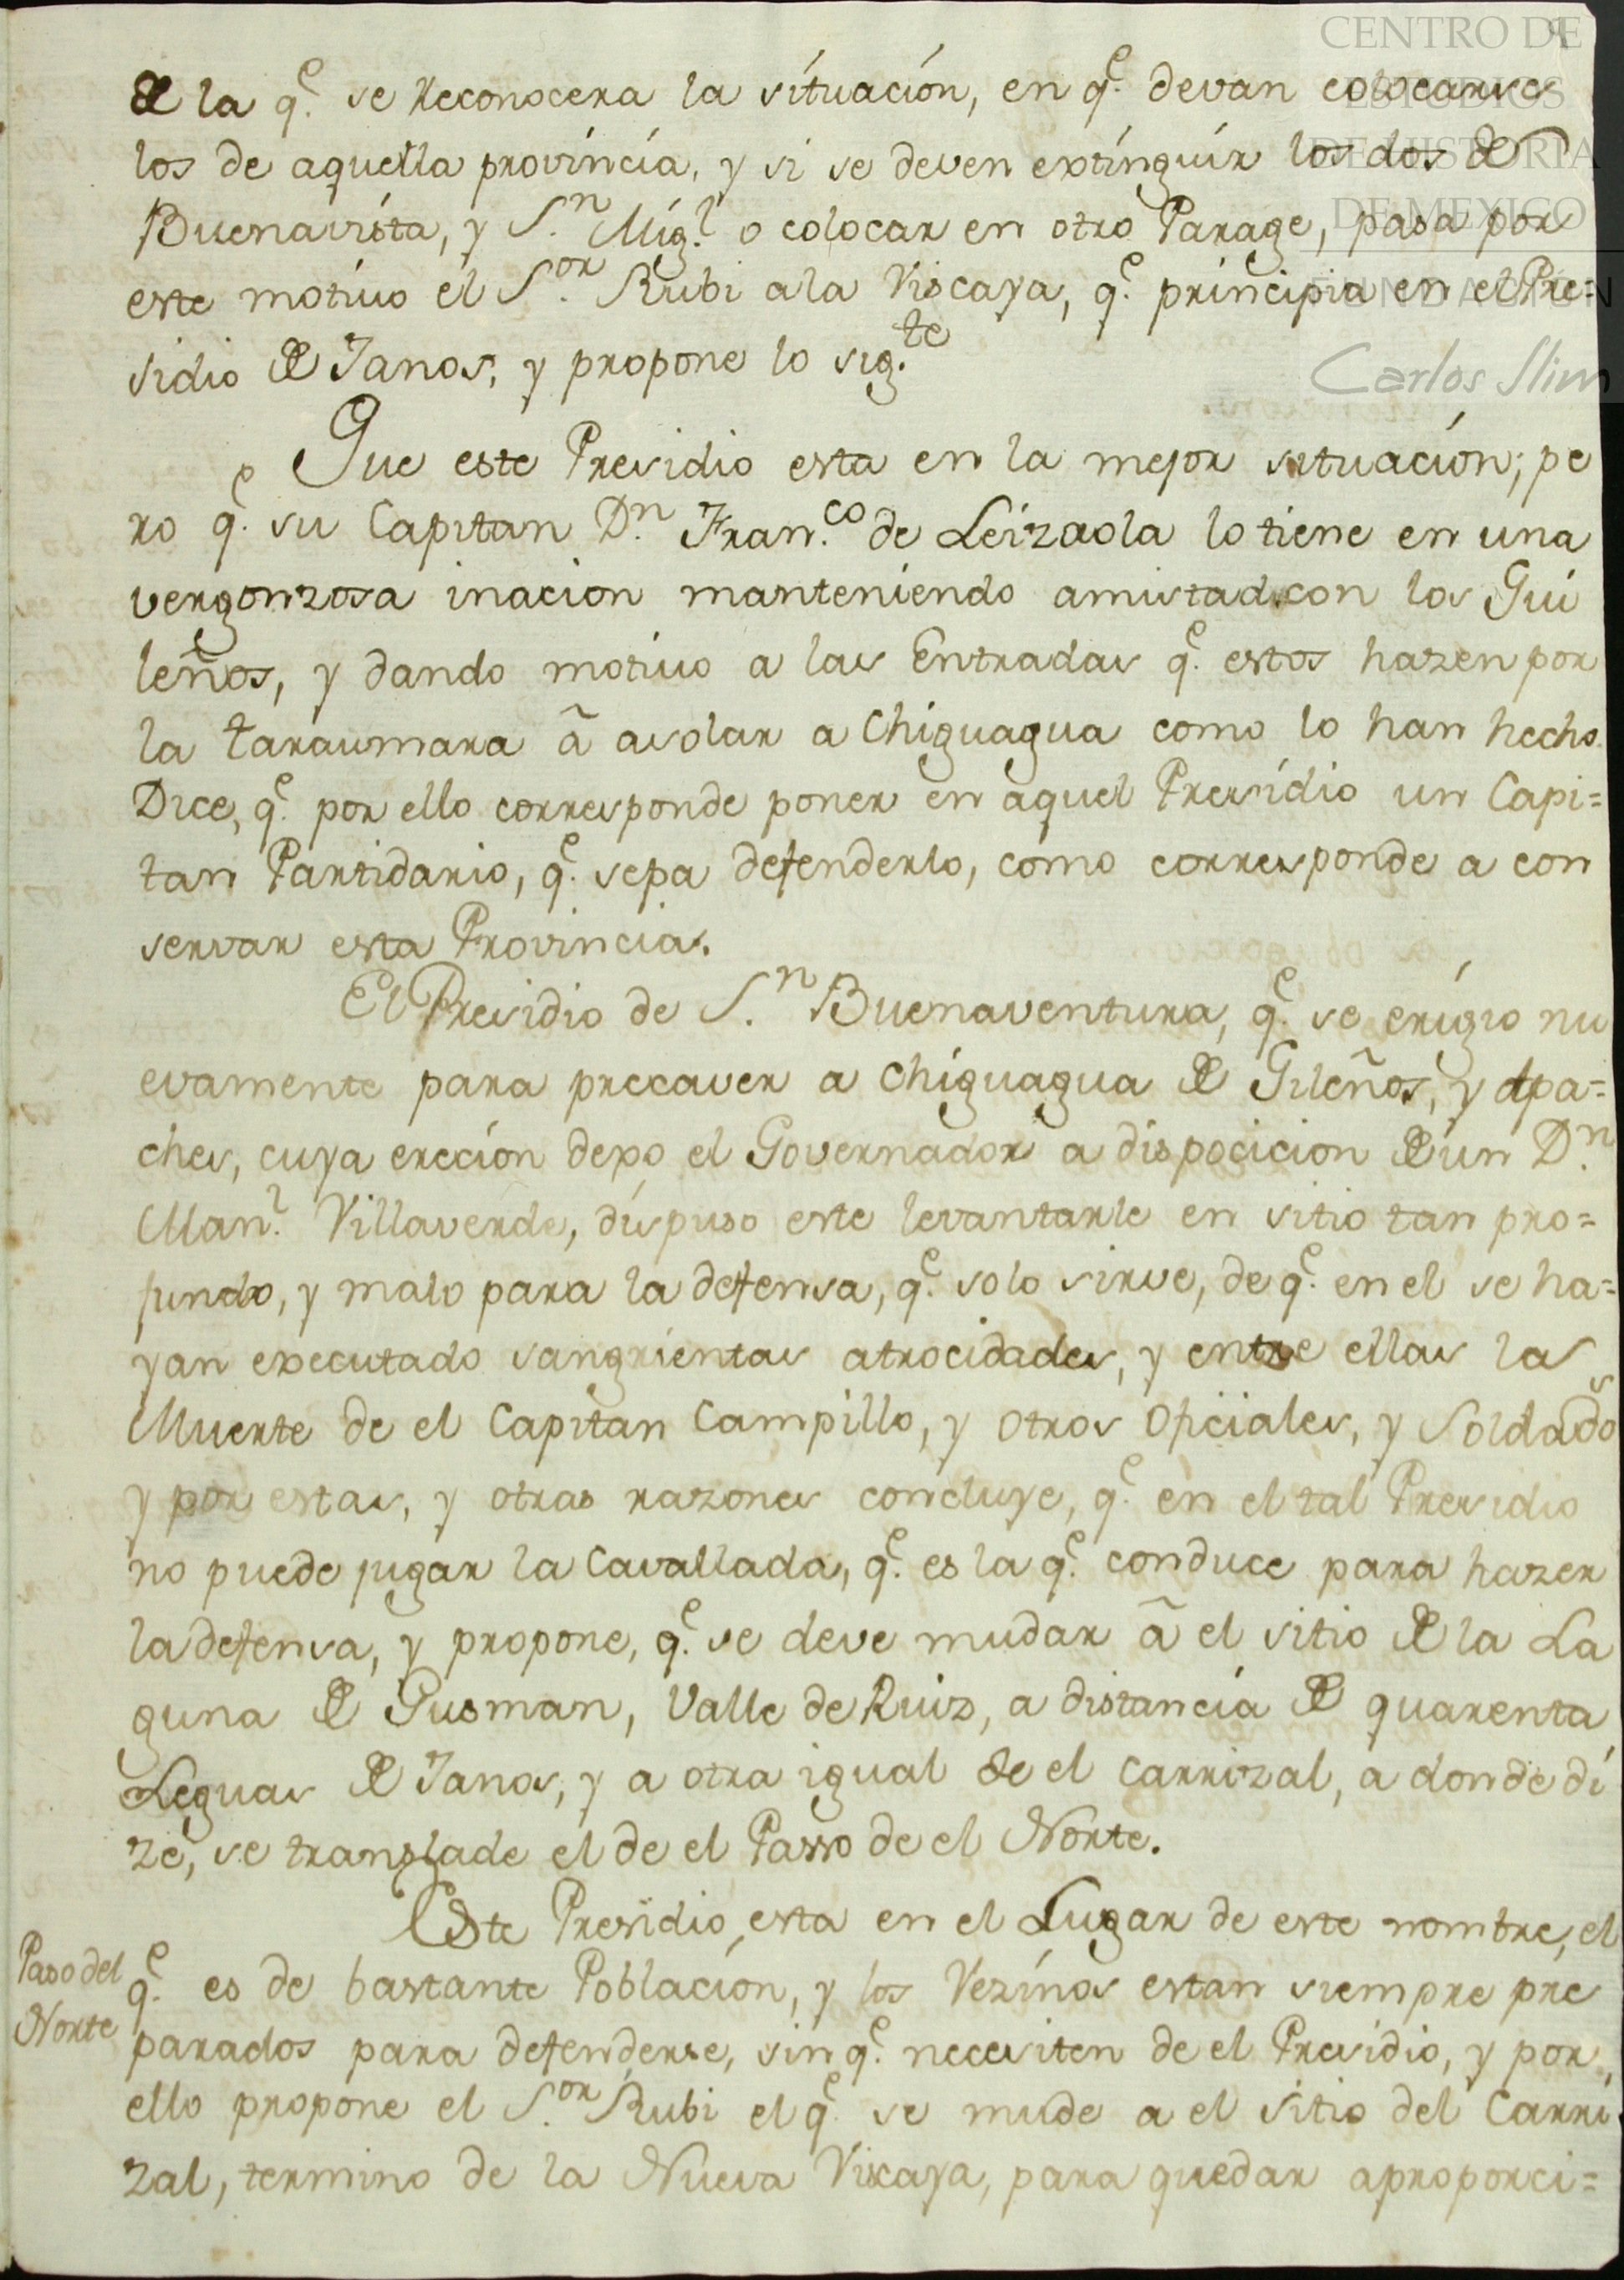 de la q.e se Reconocera la situación, en q.e devan colocarse
los de aquella provincia, y si se deven extinguir los dos de
Buenavista, y S.n Mig.l o colocar en otro Parage, pasa por
este motivo el S.or Rubi a la Viscaya, q.e principia en el Pre=
sidio de Janos, y propone lo sig.te
Que este Presidio esta en la mejor situación; pe
ro q.e su Capitan D.n Fran.co de Leizaola lo tiene en una
vergonzosa inacion manteniendo amistad con los Gui
leños, y dando motivo a las Entradas q.e estos hazen por
la taraumara ã asolar a Chiguagua como lo han hecho
Dice, q.e por ello corresponde poner en aquel Presidio un Capi=
tan Partidario, q.e sepa defenderlo, como corresponde a con
servar esta Provincia.
El Presidio de S.n Buenaventura, q.e se erigio nu
evamente para precaver a Chiguagua de Gileños, y Apa=
ches, cuya ereción dexo el Governador a dispocicion de un D.n
Man.l Villaverde, dispuso este levantarle en sitio tan pro=
fundo, y malo para la defensa, q.e solo sirve, de q.e en el se ha=
yan executado sangrientas atrocidades, y entre ellas la
Muerte de el Capitan Campillo, y otros Oficiales, y Soldados
y por estas, y otras razones concluye, q.e en el tal Presidio
no puede jugar la Cavallada, q.e es la q.e conduce para hazer
la defensa, y propone, q.e se deve mudar ã el sitio de la La
guna de Gusman, Valle de Ruiz, a distancia de quarenta
Leguas de Janos, y a otra igual de el Carrizal, a donde di
ze, se translade el de el Passo de el Norte.
Este Presidio esta en el Lugar de este nombre, el
Paso del
Norte
q.e es de bastante Población, y los Vezinos estan siempre pre
parados para defenderse, sin q.e necesiten de el Presidio, y por
ello propone el S.or Rubi el q.e se mude a el sitio del Carri
zal, termino de la Nueva Viscaya, para quedar aproporci=
CENTRO DE
ESTUDIOS
DE HISTORIA
DE MEXICO
FUNDACIÓN
Carlos Slim